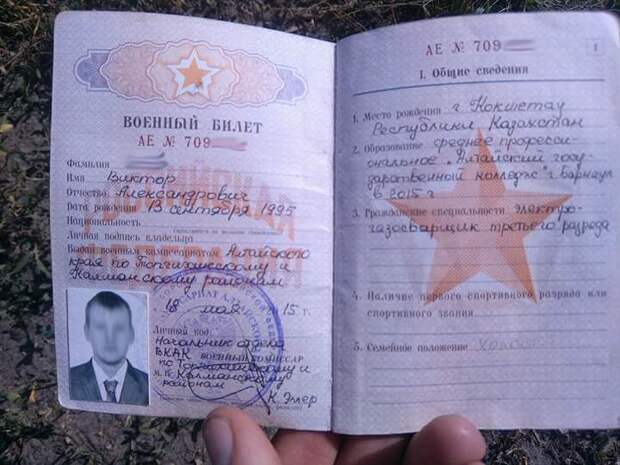 ВОЕННЫЙ БИЛЕТ
АЕ № 709
Фамилия
Имя Виктор
Отчество Александрович
Дата рождения 13 сентября 1995
Национальность
Личная подпись владельца
Выдан военным комиссариатом Алтайского
края по Топчихинскому и
Калманскому районам
18 мая 2015 г.
Личный код:
Начальник отдела
ВКАК ВОЕННЫЙ КОМИССАР
по Топчихинскому и
М. П. Калманскому
районам К. Эллер
АЕ № 709
1
I. Общие сведения
1. Место рождения г. Кокшетау
Республики Казахстан
2. Образование среднее професси-
ональное "Алтайский госу-
дарственный колледж" г. Барнаул
в 2015 г
3. Гражданские специальности электро-
газосварщик третьего разряда
4. Наличие первого спортивного разряда или
спортивного звания
5. Семейное положение Холост